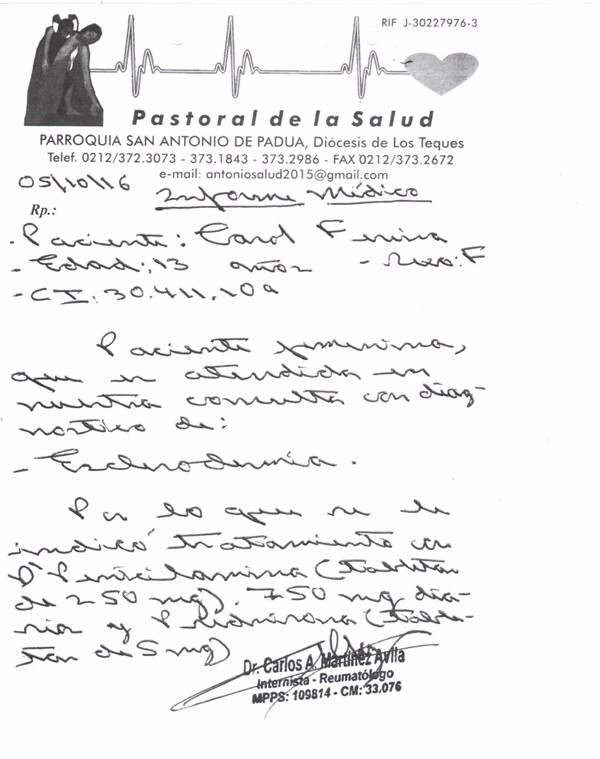 RIF J-30227976-3
Pastoral de la Salud
PARROQUIA SAN ANTONIO DE PADUA, Diócesis de Los Teques
Telef. 0212/372.3073 - 373.1843 - 373.2986 - FAX 0212/373.2672
e-mail: antoniosalud2015@gmail.com
05/10/16 Informe Médico
Rp.:
- Paciente: Carol
- Edad: 13 años - Sexo: F
- CI: 30.411.109
Paciente femenina,
que es atendida en
nuestra consulta con diag-
nostico de:
- Esclerodermia.
Por lo que se le
indicó tratamiento con
D Penicilamina (Tabletas
de 250 mg). 750 mg dia-
ria y Prednisona (table-
tas de 5 mg)
Dr. Carlos A. Martínez Avila
Internista - Reumatólogo
MPPS: 109814 - CM: 33.076